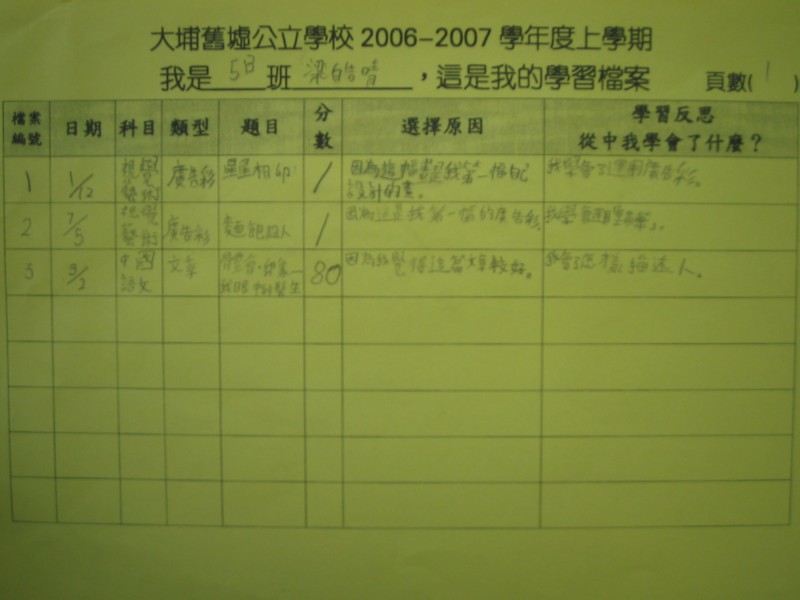 大埔舊墟公立學校 2006-2007 學年度上學期
我是 5B 班 梁皓晴,這是我的學習檔案 頁數( 1 )
檔案編號 日期 科目 類型 題目 分數 選擇原因 學習反思 從中我學會了什麼?
1 1/12 視覺藝術 廣告彩 相印 / 因為這幅畫是我第一幅自己設計的畫。 我學會了運用廣告彩。
2 7/5 視覺藝術 廣告彩 麵飽超人 / 因為這是我第一幅的廣告彩 我學
3 9/2 中國語文 文章 80 因為我覺得這篇文章較好。 我會了怎樣描述人。